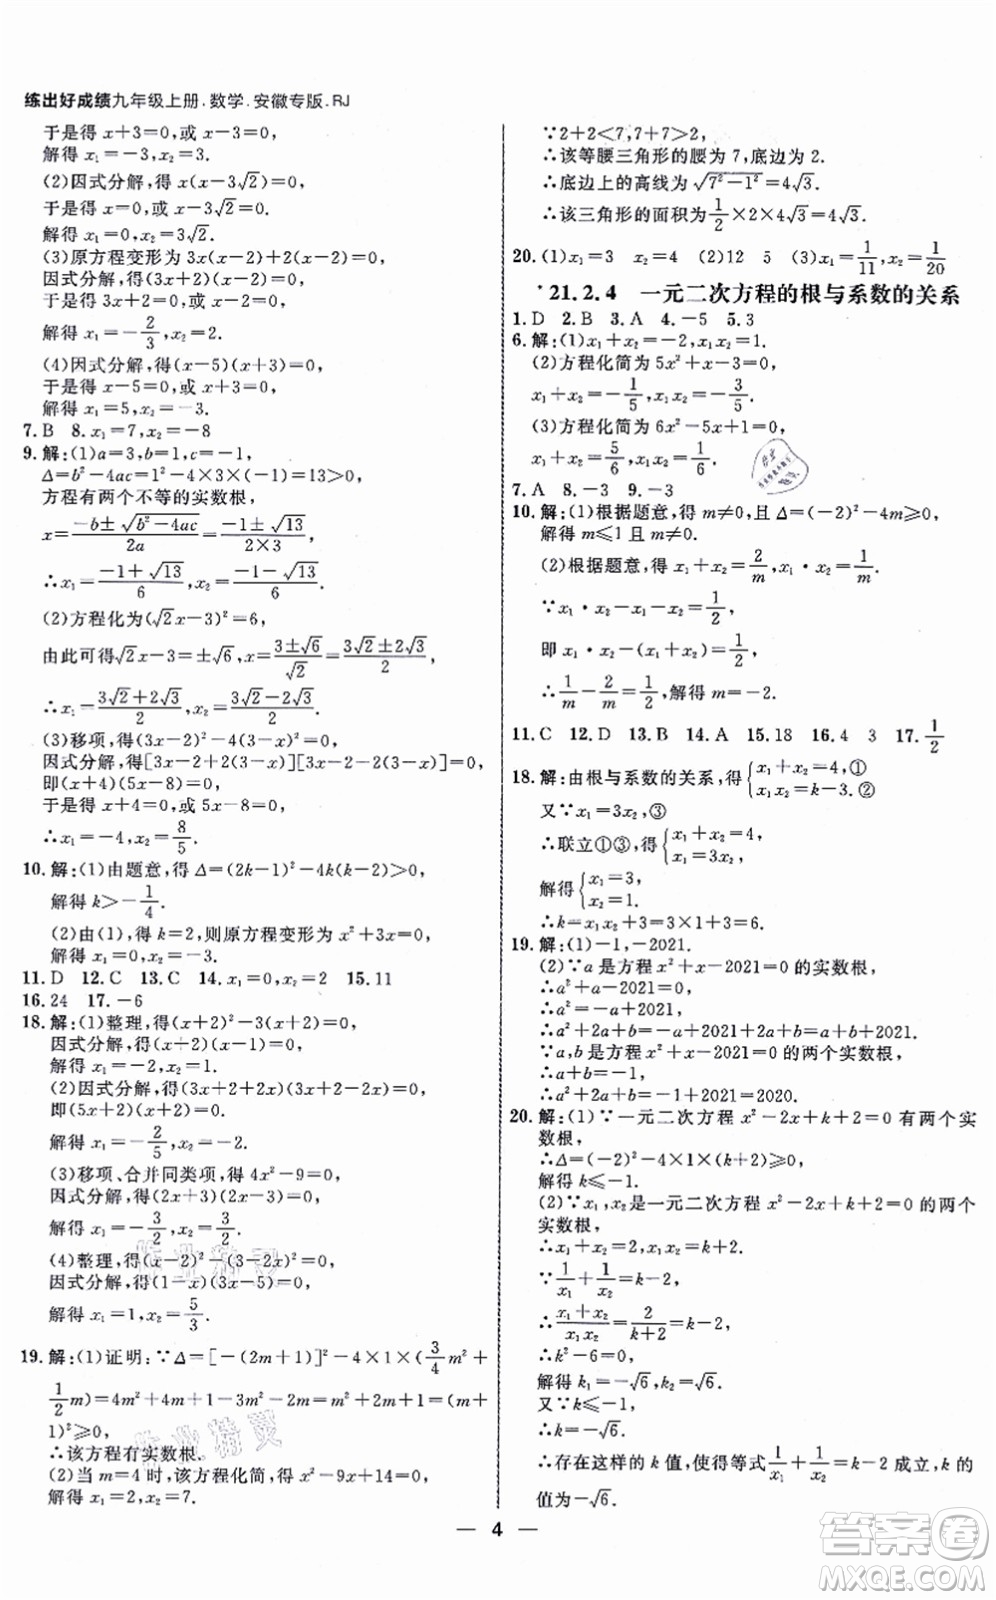 练出好成绩九年级上册.数学.安徽专版.RJ
于是得 x+3=0,或 x=0,
解得 x₁=-3,x₂=3.
(2)因式分解,得 x(x-3√2)=0,
于是得 x=0,或 x-3√2=0.
解得 x₁=0,x₂=3√2.
(3)原方程变形为 3x(x-2)+2(x-2)=0,
因式分解,得(x-2)(3x+2)=0,
于是得 3x+2=0,或 x-2=0,
解得 x₁=-2/3,x₂=2.
(4)因式分解,得(x-5)(x+3)=0,
于是得 x-5=0,或 x+3=0,
解得 x₁=5,x₂=-3.
7.B 8.x₁=7,x₂=-8
9.解:(1)a=3,b=1,c=-1,
Δ=b²-4ac=1²-4×3×(-1)=13>0,
方程有两个不等的实数根,
x=(-b±√(b²-4ac))/2a=(-1±√13)/(2×3),
∴x₁=(-1+√13)/6,x₂=(-1-√13)/6.
(2)方程化为(√2x-3)²=6,
由此可得√2x-3=±√6,x=(3±√6)/√2=(3√2±2√3)/2,
∴x₁=(3√2+2√3)/2,x₂=(3√2-2√3)/2.
(3)移项,得(3x-2)²-4(3-x)²=0,
因式分解,得[3x-2+2(3-x)][3x-2-2(3-x)]=0,
即(x+4)(5x-8)=0,
于是得 x+4=0,或 5x-8=0,
∴x₁=-4,x₂=8/5.
10.解:(1)由题意,得 Δ=(2k-1)²-4k(k-2)>0,
解得 k>-1/4.
(2)由(1),得 k=2,则原方程变形为 x²+3x=0,
解得 x₁=0,x₂=-3.
11.D 12.C 13.C 14.x₁=0,x₂=2 15.11
16.24 17.-6
18.解:(1)整理,得(x+2)²-3(x+2)=0,
因式分解,得(x+2)(x-1)=0,
解得 x₁=-2,x₂=1.
(2)因式分解,得(3x+2+2x)(3x+2-2x)=0,
即(5x+2)(x+2)=0,
解得 x₁=-2/5,x₂=-2.
(3)移项、合并同类项,得 4x²-9=0,
因式分解,得(2x+3)(2x-3)=0,
解得 x₁=-3/2,x₂=3/2.
(4)整理,得(x-2)²-(2x-3)²=0,
因式分解,得(1-x)(3x-5)=0,
解得 x₁=1,x₂=5/3.
19.解:(1)证明:∵Δ=[-(2m+1)]²-4×1×(3/4m²+
1/2m)=4m²+4m+1-3m²-2m=m²+2m+1=(m+
1)²≥0,
∴该方程有实数根.
(2)当 m=4时,该方程化简,得 x²-9x+14=0,
解得 x₁=2,x₂=7.
∵2+2<7,7+7>2,
∴该等腰三角形的腰为 7,底边为 2.
∴底边上的高线为√(7²-1²)=4√3.
∴该三角形的面积为1/2×2×4√3=4√3.
20.(1)x₁=3 x₂=4 (2)12 5 (3)x₁=1/11,x₂=1/20
*21.2.4 一元二次方程的根与系数的关系
1.D 2.B 3.A 4.-5 5.3
6.解:(1)x₁+x₂=-2,x₁x₂=-6.
(2)方程化简为 5x²+x-3=0,
x₁+x₂=-1/5,x₁x₂=-3/5.
(3)方程化简为 6x²-5x+1=0,
x₁+x₂=5/6,x₁x₂=1/6.
7.A 8.-3 9.-3
10.解:(1)根据题意,得 m≠0,且 Δ=(-2)²-4m≥0,
解得 m≤1 且 m≠0.
(2)根据题意,得 x₁+x₂=2/m,x₁·x₂=1/m.
∵x₁·x₂-x₁-x₂=1/2,
即 x₁·x₂-(x₁+x₂)=1/2,
∴1/m-2/m=1/2,解得 m=-2.
11.C 12.D 13.D 14.A 15.18 16.4 3 17.1/2
18.解:由根与系数的关系,得{x₁+x₂=4,① x₁x₂=k-3.②
又∵x₁=3x₂,③
∴联立①③,得{x₁+x₂=4, x₁=3x₂,
解得{x₁=3, x₂=1.
∴k=x₁x₂+3=3×1+3=6.
19.解:(1)-1,-2021.
(2)∵a是方程 x²+x-2021=0 的实数根,
∴a²+a-2021=0,
∴a²=-a+2021,
∴a²+2a+b=-a+2021+2a+b=2021+a+b.
∵a,b是方程 x²+x-2021=0 的两个实数根,
∴a+b=-1,
∴a²+2a+b=-1+2021=2020.
20.解:(1)∵一元二次方程 x²-2x+k+2=0 有两个实
数根,
∴Δ=(-2)²-4×1×(k+2)≥0,
解得 k≤-1.
(2)∵x₁,x₂是一元二次方程 x²-2x+k+2=0 的两个
实数根,
∴x₁+x₂=2,x₁x₂=k+2.
∵1/x₁+1/x₂=k-2,
∴(x₁+x₂)/(x₁x₂)=2/(k+2)=k-2,
∴k²-6=0,
解得 k₁=-√6,k₂=√6.
又∵k≤-1,
∴k=-√6.
∴存在这样的 k 值,使得等式1/x₁+1/x₂=k-2 成立,k的
值为-√6.
作业精灵
作业精灵
— 4 —
答案卷
MXQE.COM